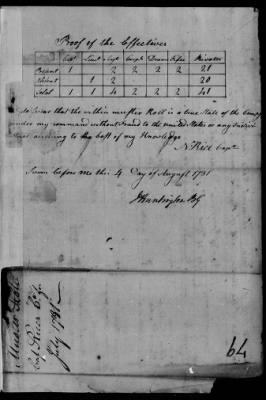 Proof of the Effectives
Capt Lieut Serjt Corpls Drum Fifes Privates
Present 1 2 2 2 2 21
Absent 1 2 20
Total 1 1 4 2 2 2 41
I do Swear that the within muster Roll is a true State of the Company
under my command without fraud to the united States or any Individual
according to the best of my Knowledge
N Rice Capt
Sworn before me this 4 Day of August 1781
J Huntington BG
Muster Roll
Capt Rices Co
July 1781
64